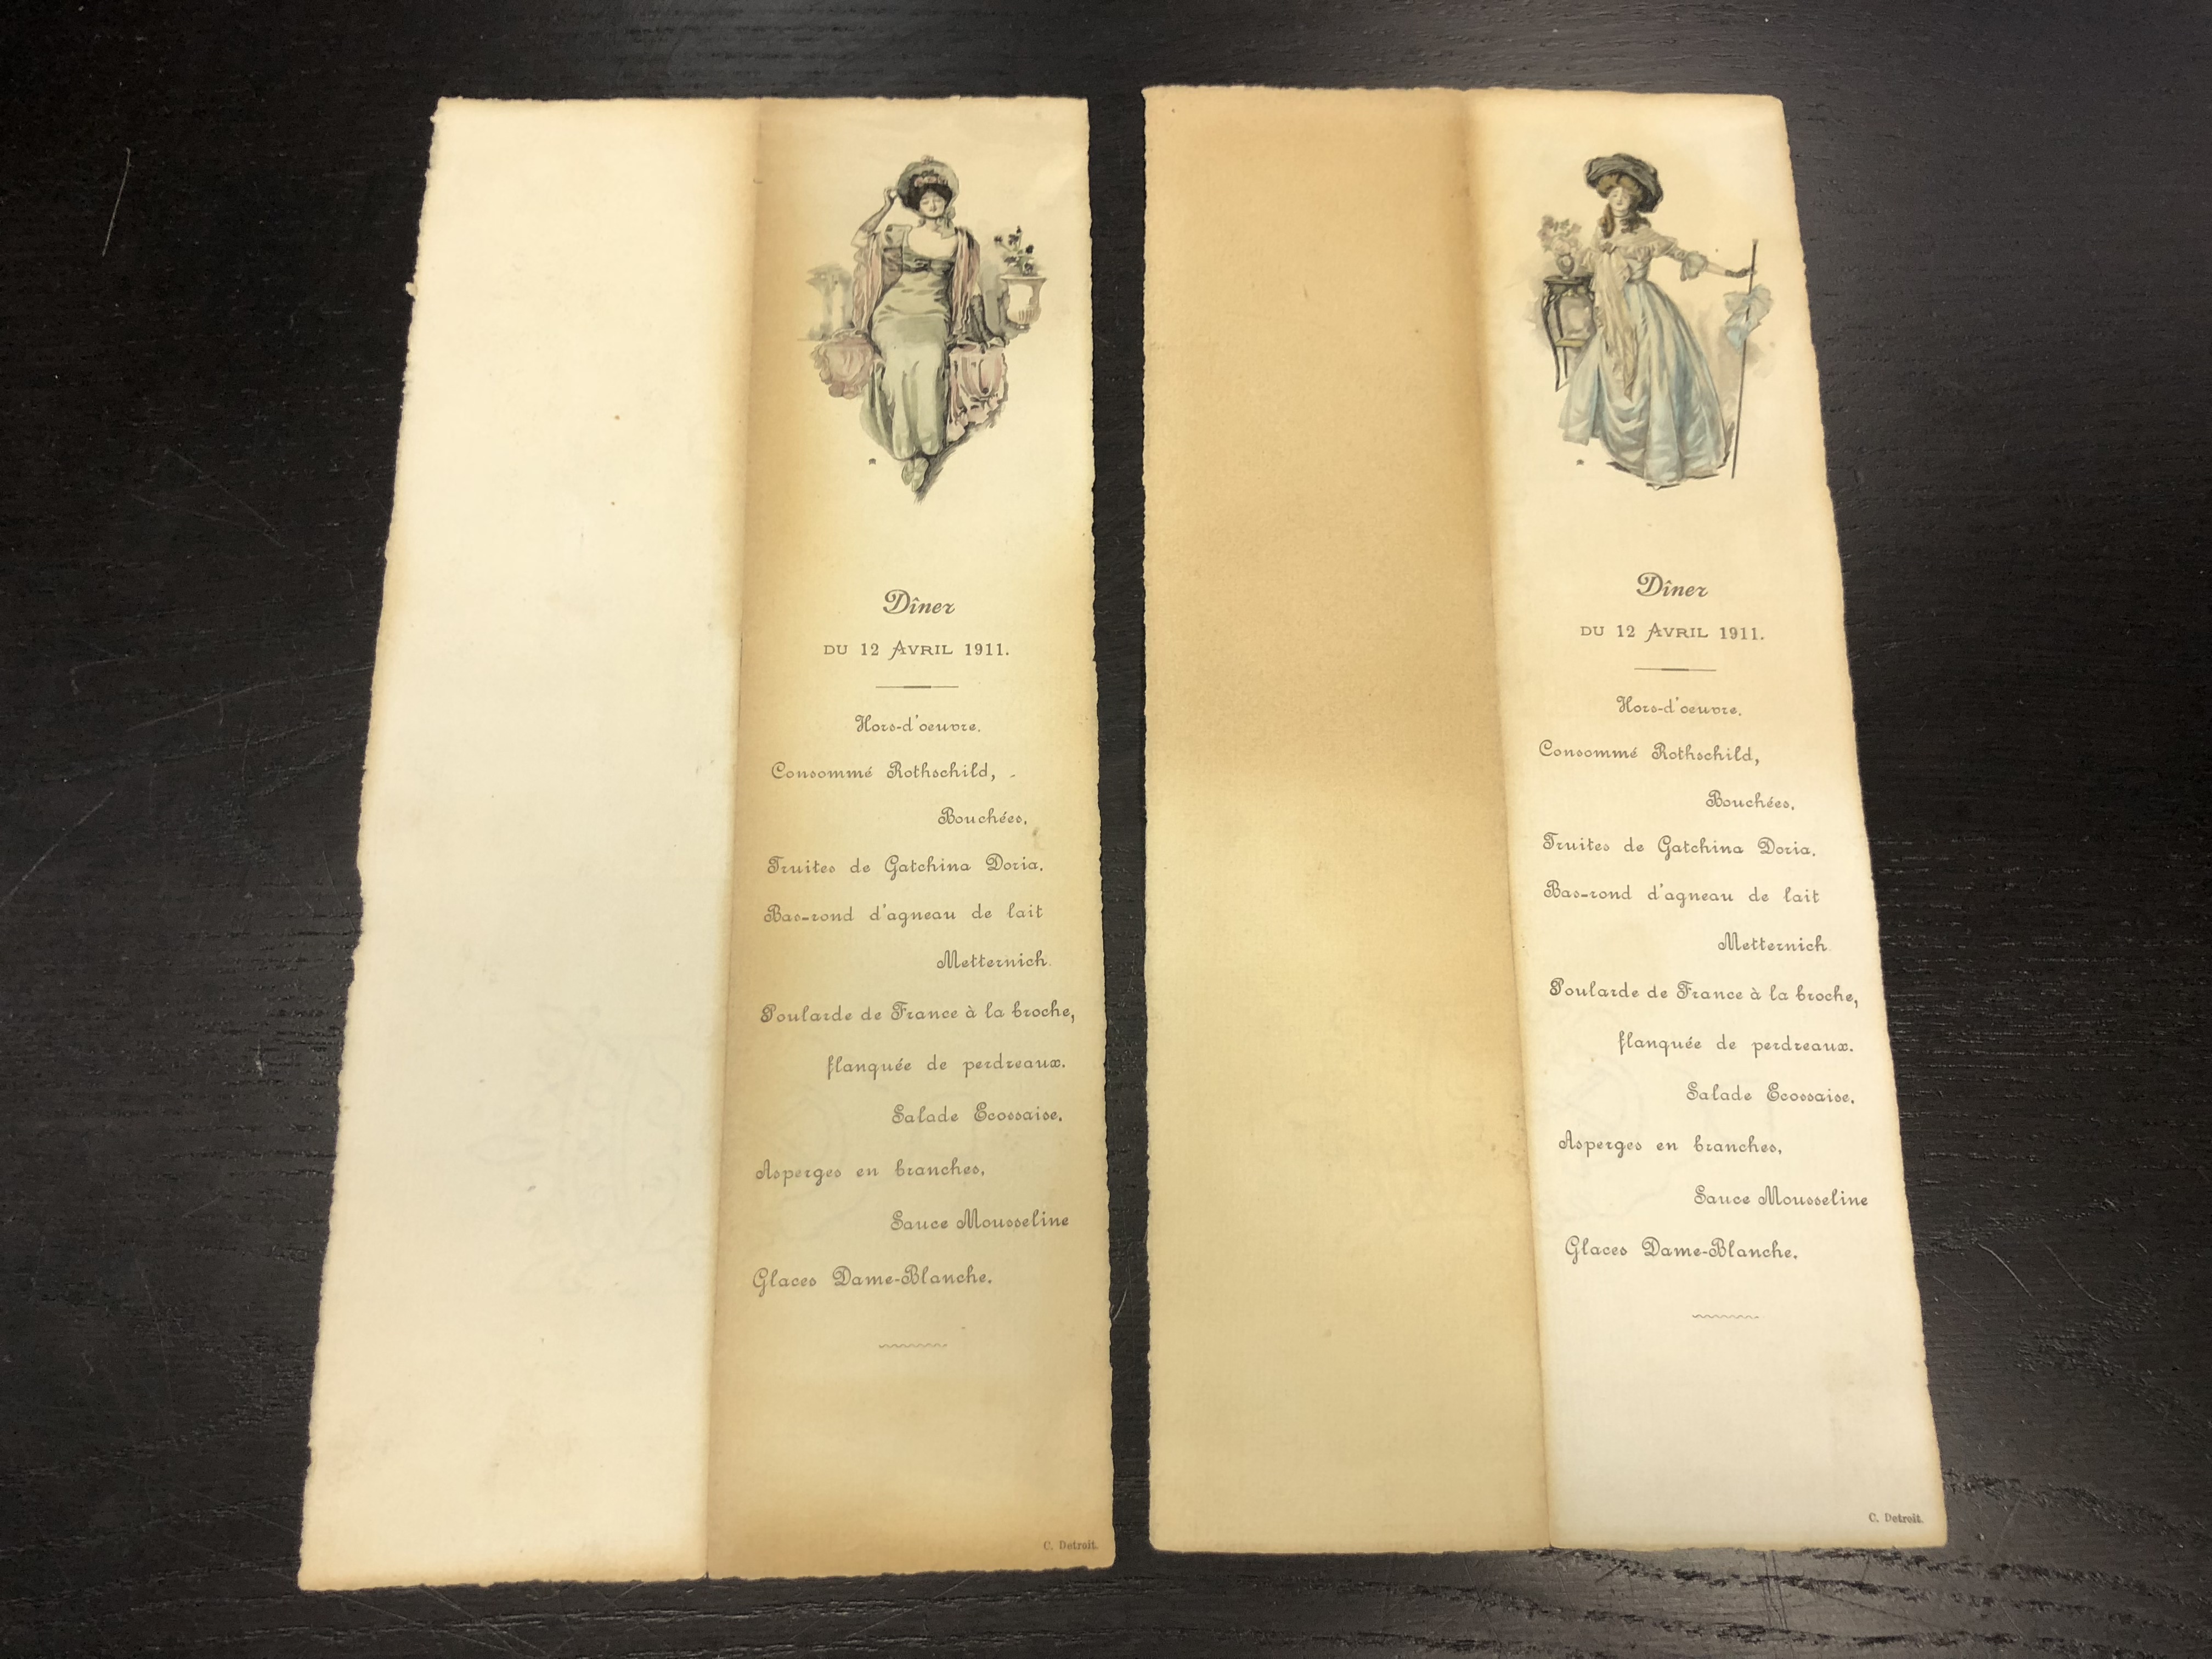 Dîner
DU 12 AVRIL 1911.
Hors-d'oeuvre.
Consommé Rothschild,
Bouchées.
Truites de Gatchina Doria.
Bas-rond d'agneau de lait
Metternich.
Poularde de France à la broche,
flanquée de perdreaux.
Salade Ecossaise.
Asperges en branches,
Sauce Mousseline
Glaces Dame-Blanche.
C. Detroit.
Dîner
DU 12 AVRIL 1911.
Hors-d'oeuvre.
Consommé Rothschild,
Bouchées.
Truites de Gatchina Doria.
Bas-rond d'agneau de lait
Metternich.
Poularde de France à la broche,
flanquée de perdreaux.
Salade Ecossaise.
Asperges en branches,
Sauce Mousseline
Glaces Dame-Blanche.
C. Detroit.